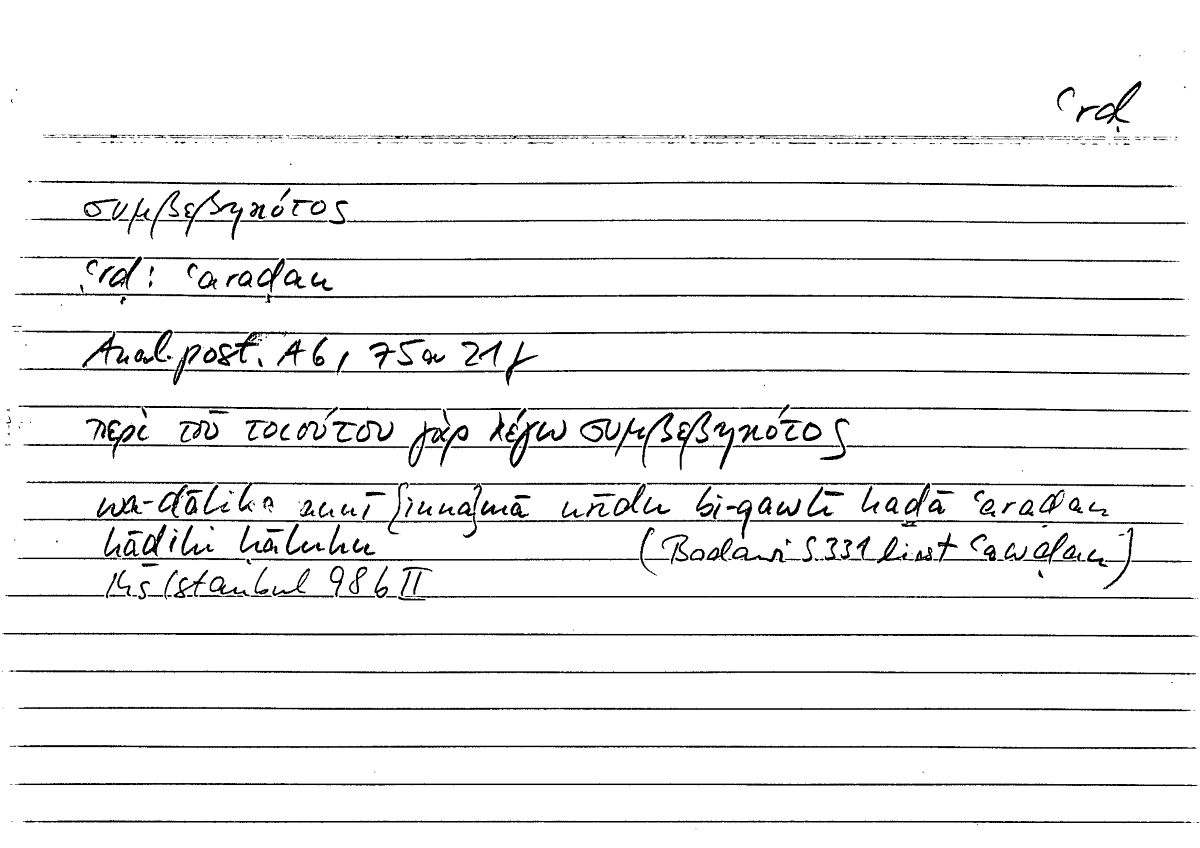 ʿrḍ
συμβεβηκότος
ʿrḍ: ʿaraḍan
Anal. post. A6, 75a 21f
περὶ τοῦ τοιούτου γὰρ λέγω συμβεβηκότος
wa-ḏālika annī [inna]mā urīdu bi-qawlī haḏā ʿaraḍan
hāḏihi ḥāluhu (Badawi S. 331 liest ʿawḍan)
Ms Istanbul 986 II